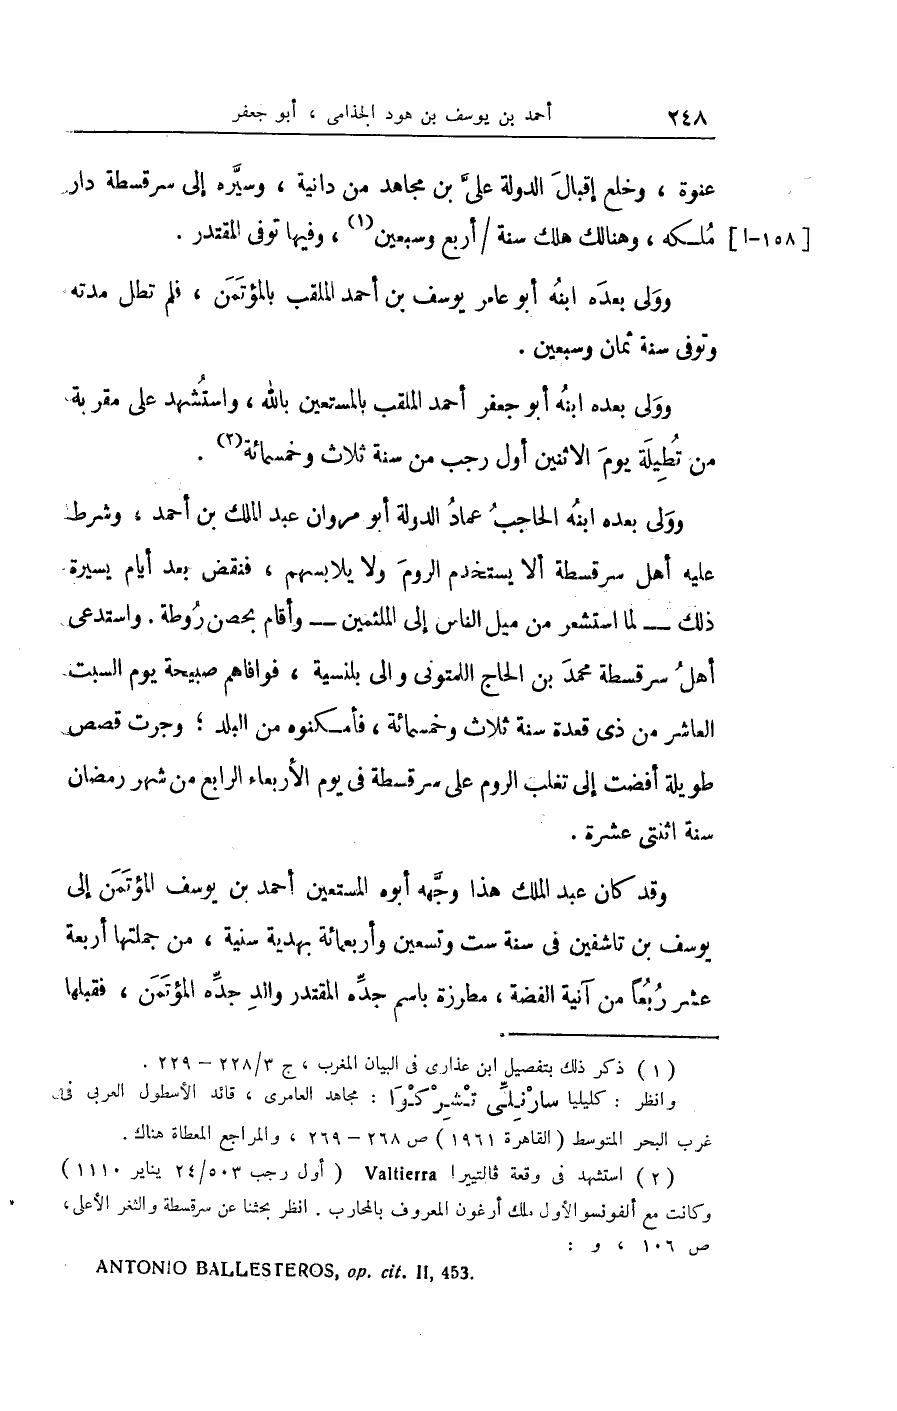 ٢٤٨ أحمد بن يوسف بن هود الجذامى ، أبو جعفر
عنوة ، وخلع إقبالَ الدولة علىَّ بن مجاهد من دانية ، وسيَّره إلى سرقسطة دار
[١٥٨-ا] مُلكه ، وهنالك هلك سنة / أربع وسبعين(١) ، وفيها توفى المقتدر .
ووَلى بعدَه ابنُه أبو عامر يوسف بن أحمد الملقب بالمؤتَمَن ، فلم تطل مدته
وتوفى سنة ثمان وسبعين .
ووَلى بعده ابنُه أبو جعفر أحمد الملقب بالمستعين بالله ، واستُشهد على مقربة
من تُطِيلَة يومَ الاثنين أول رجب من سنة ثلاث وخمسمائة(٢) .
ووَلى بعده ابنُه الحاجبُ عمادُ الدولة أبو مروان عبد الملك بن أحمد ، وشرط
عليه أهل سرقسطة ألا يستخدم الرومَ ولا يلابسهم ، فنقض بعد أيام يسيرة
ذلك — لما استشعر من ميل الناس إلى الملثمين — وأقام بحصن رُوطة . واستدعى
أهلُ سرقسطة محمدَ بن الحاج اللمتونى والى بلنسية ، فوافاهم صبيحة يوم السبت
العاشر من ذى قعدة سنة ثلاث وخمسمائة ، فأمكنوه من البلد ؛ وجرت قصص
طويلة أفضت إلى تغلب الروم على سرقسطة فى يوم الأربعاء الرابع من شهر رمضان
سنة اثنتى عشرة .
وقد كان عبد الملك هذا وجَّهه أبوه المستعين أحمد بن يوسف المؤتَمَن إلى
يوسف بن تاشفين فى سنة ست وتسعين وأربعمائة بهدية سنية ، من جملتها أربعة
عشر رُبُعًا من آنية الفضة ، مطرزة باسم جدِّه المقتدر والدِ جدِّه المؤتَمَن ، فقبلها
(١) ذكر ذلك بتفصيل ابن عذارى فى البيان المغرب ، ج ٢٢٨/٣ – ٢٢٩ .
وانظر : كليليا سارْنِلِّى تشِرْكْوَا : مجاهد العامرى ، قائد الأسطول العربى فى
غرب البحر المتوسط (القاهرة ١٩٦١) ص ٢٦٨ – ٢٦٩ ، والمراجع المعطاة هناك .
(٢) استشهد فى وقعة ڤالتييرا Valtierra (أول رجب ٢٤/٥٠٣ يناير ١١١٠)
وكانت مع ألفونسو الأول ملك أرغون المعروف بالمحارب . انظر بحثنا عن سرقسطة والثغر الأعلى ،
ص ١٠٦ ، و :
ANTONIO BALLESTEROS, op. cit. II, 453.